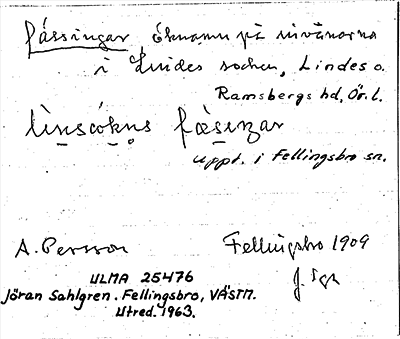 fässingar öknamn på invånarna
i Lindes socken, Lindes o.
Ramsbergs hd, Ör. l.
fæsıŋar
uppt. i Fellingsbro sn.
A. Persson Fellingsbro 1909
ULMA 25476
Jöran Sahlgren. Fellingsbro, VÄSTM.
Utred. 1963.